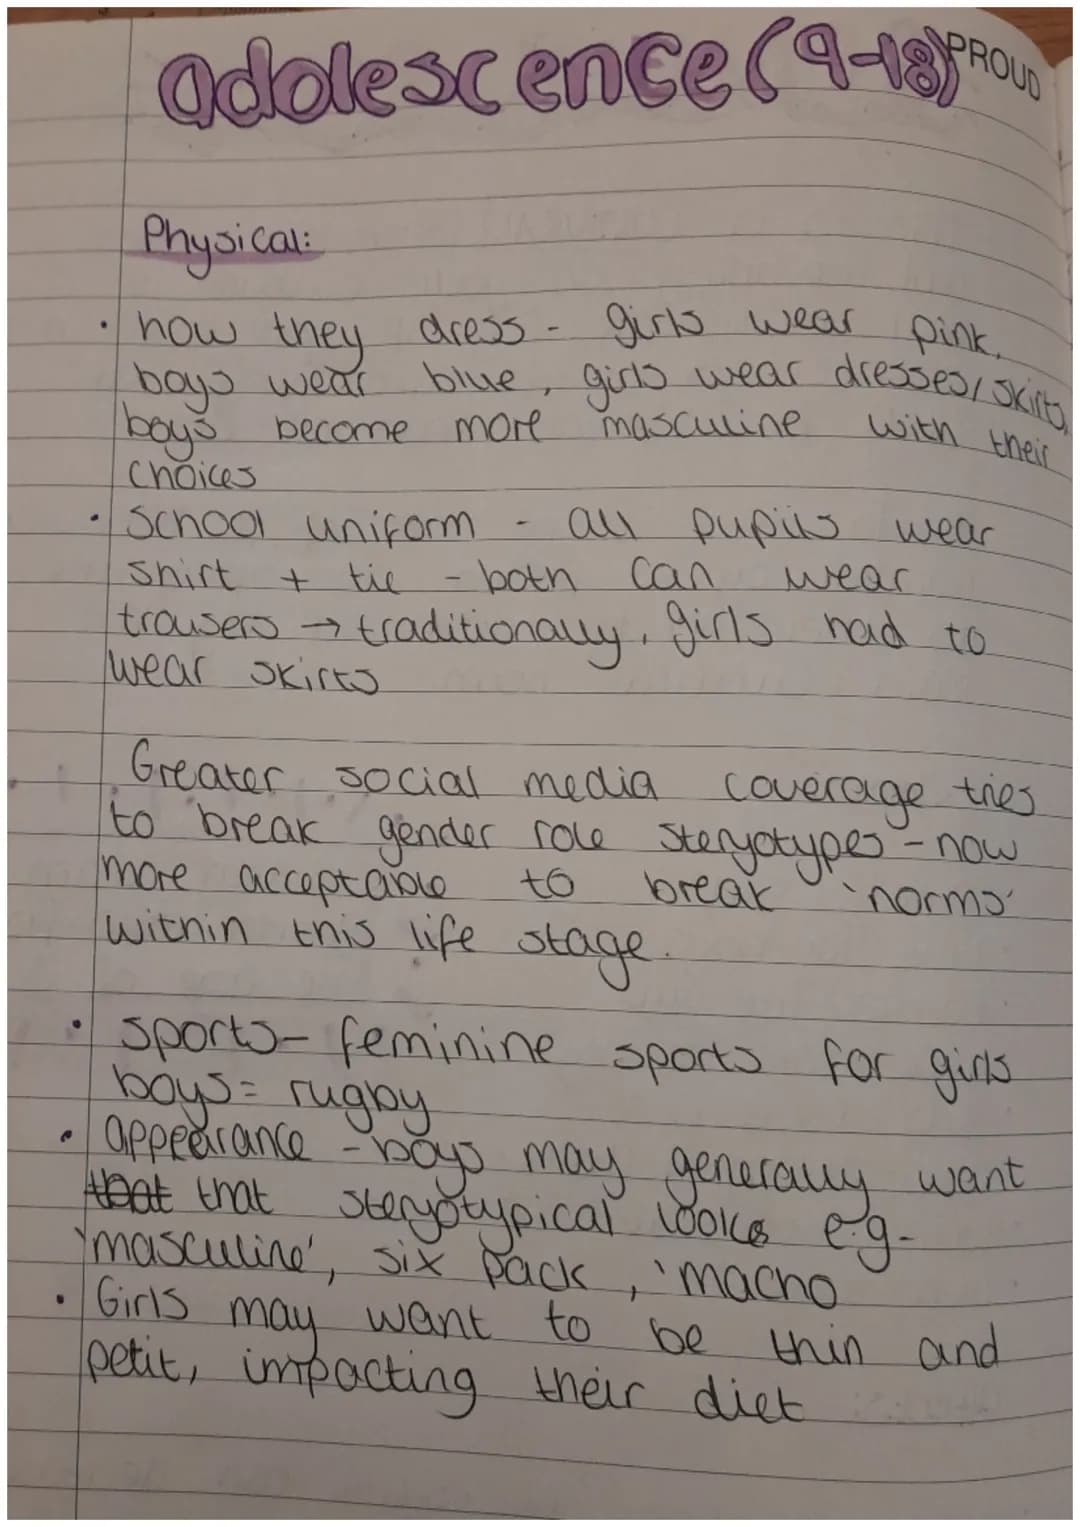 adolescence (9-18)
PROUD
Physical:
• how they dress - girls wear pink,
boys wear blue, girls wear dresses/skirts,
boys become more masculine with their
choices
• School uniform - all pupils wear
shirt + tie - both can wear
trousers → traditionally, girls had to
wear skirts
Greater social media coverage tries
to break gender role steryotypes - now
more acceptable to break 'norms'
within this life stage.
• sports - feminine sports for girls
boys = rugby
• appearance - boys may generally want
that that steryotypical looks e.g-
'masculine', six pack, 'macho
• Girls may want to be thin and
petit, impacting their diet